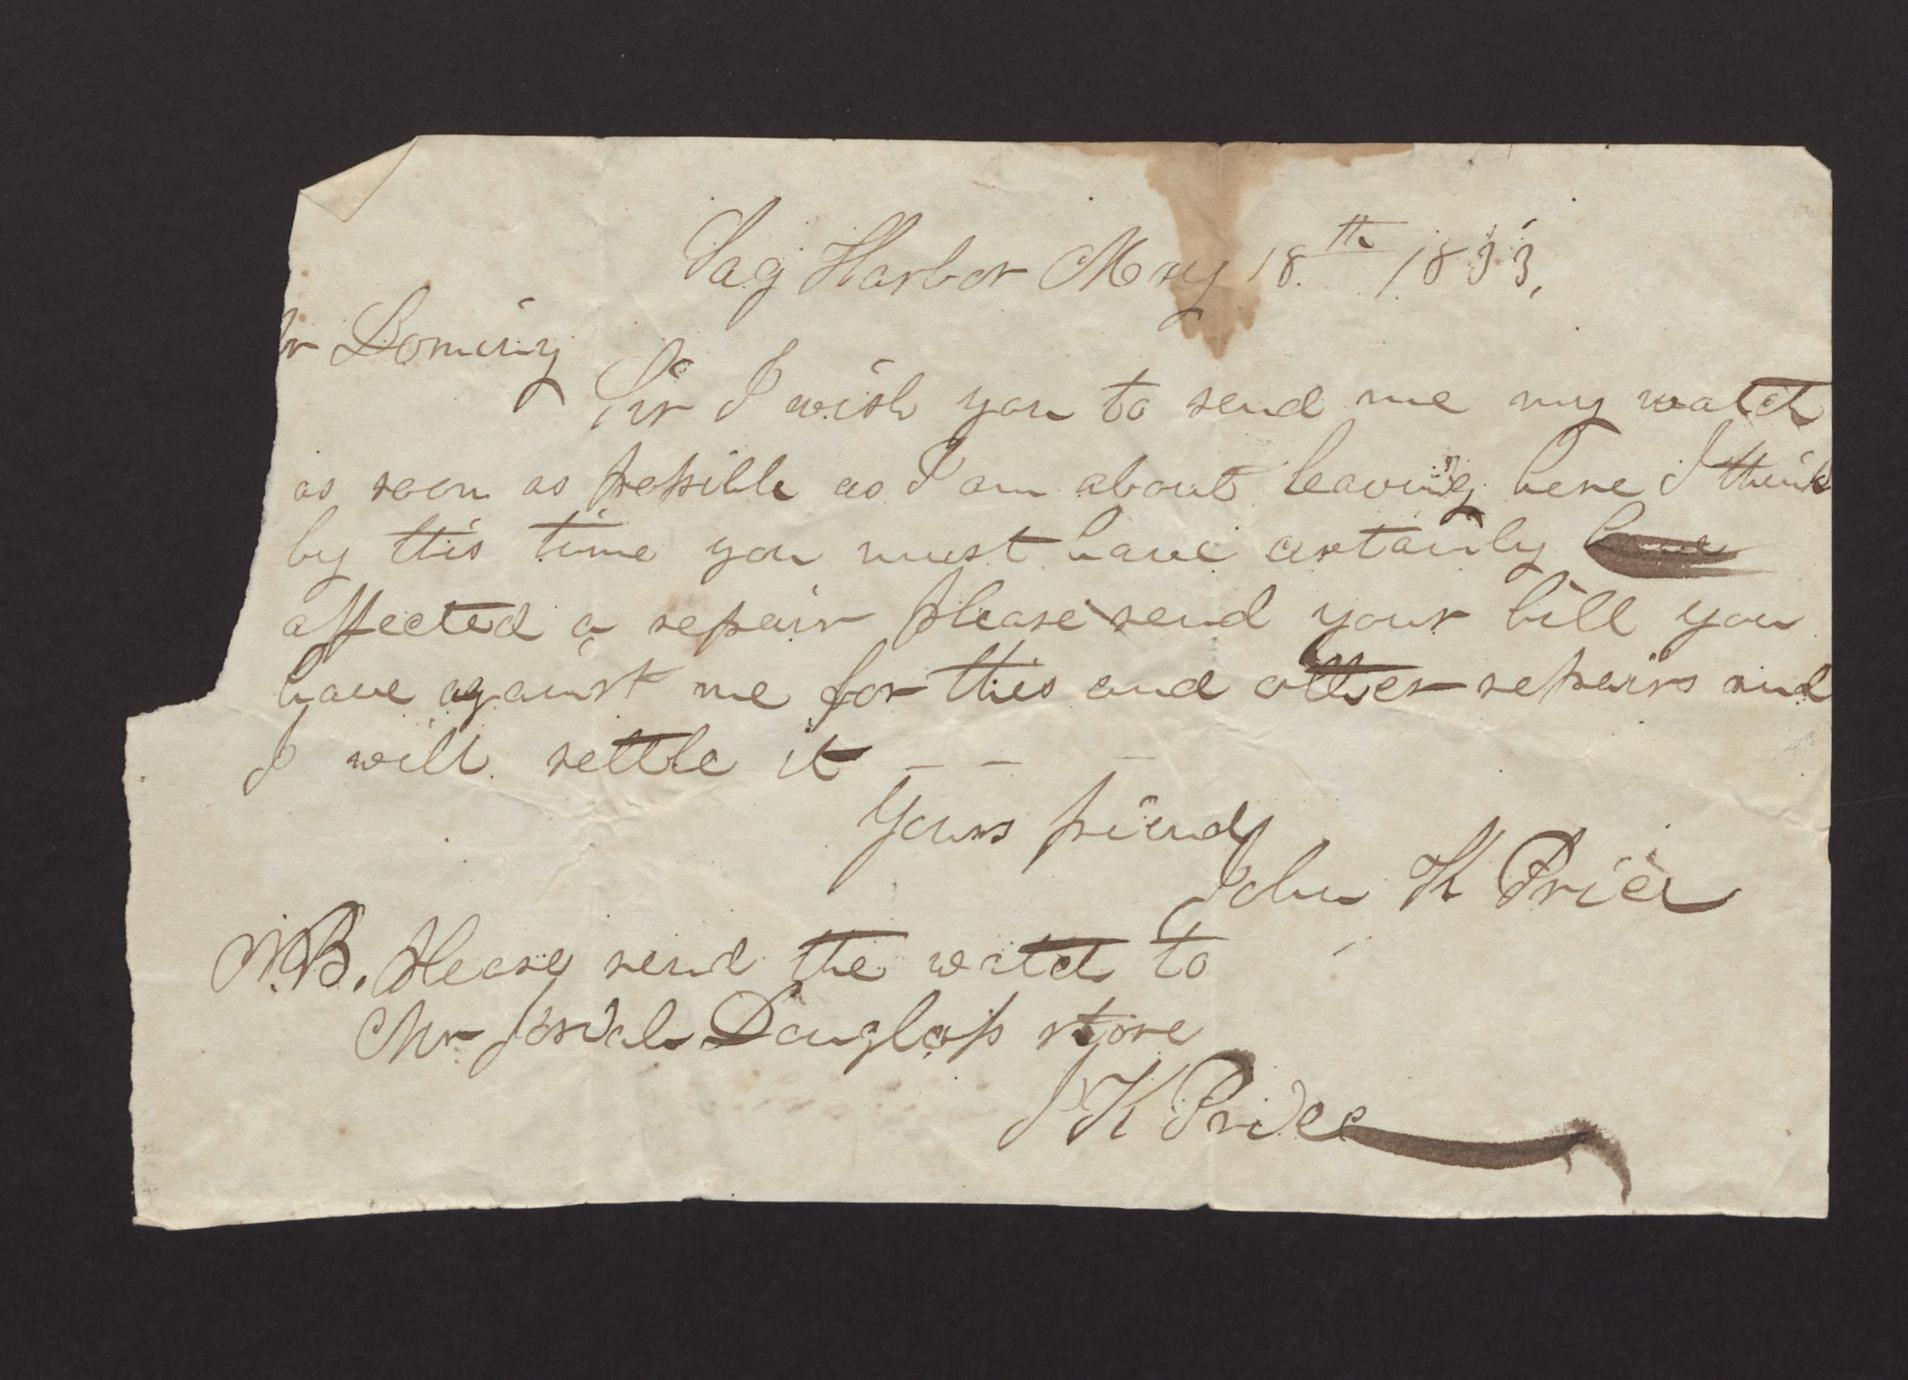 Sag Harbor May 18th 1833,
r Dominy
Sir I wish you to send me my watch
as soon as possible as I am about leaving here I think
by this time you must have certainly have
affected a repair please send your bill you
have against me for this and other repairs and
I will settle it – – –
Yours friend
John K Price
N.B. Please send the watch to
Mr Josiah Douglass store
J K Price